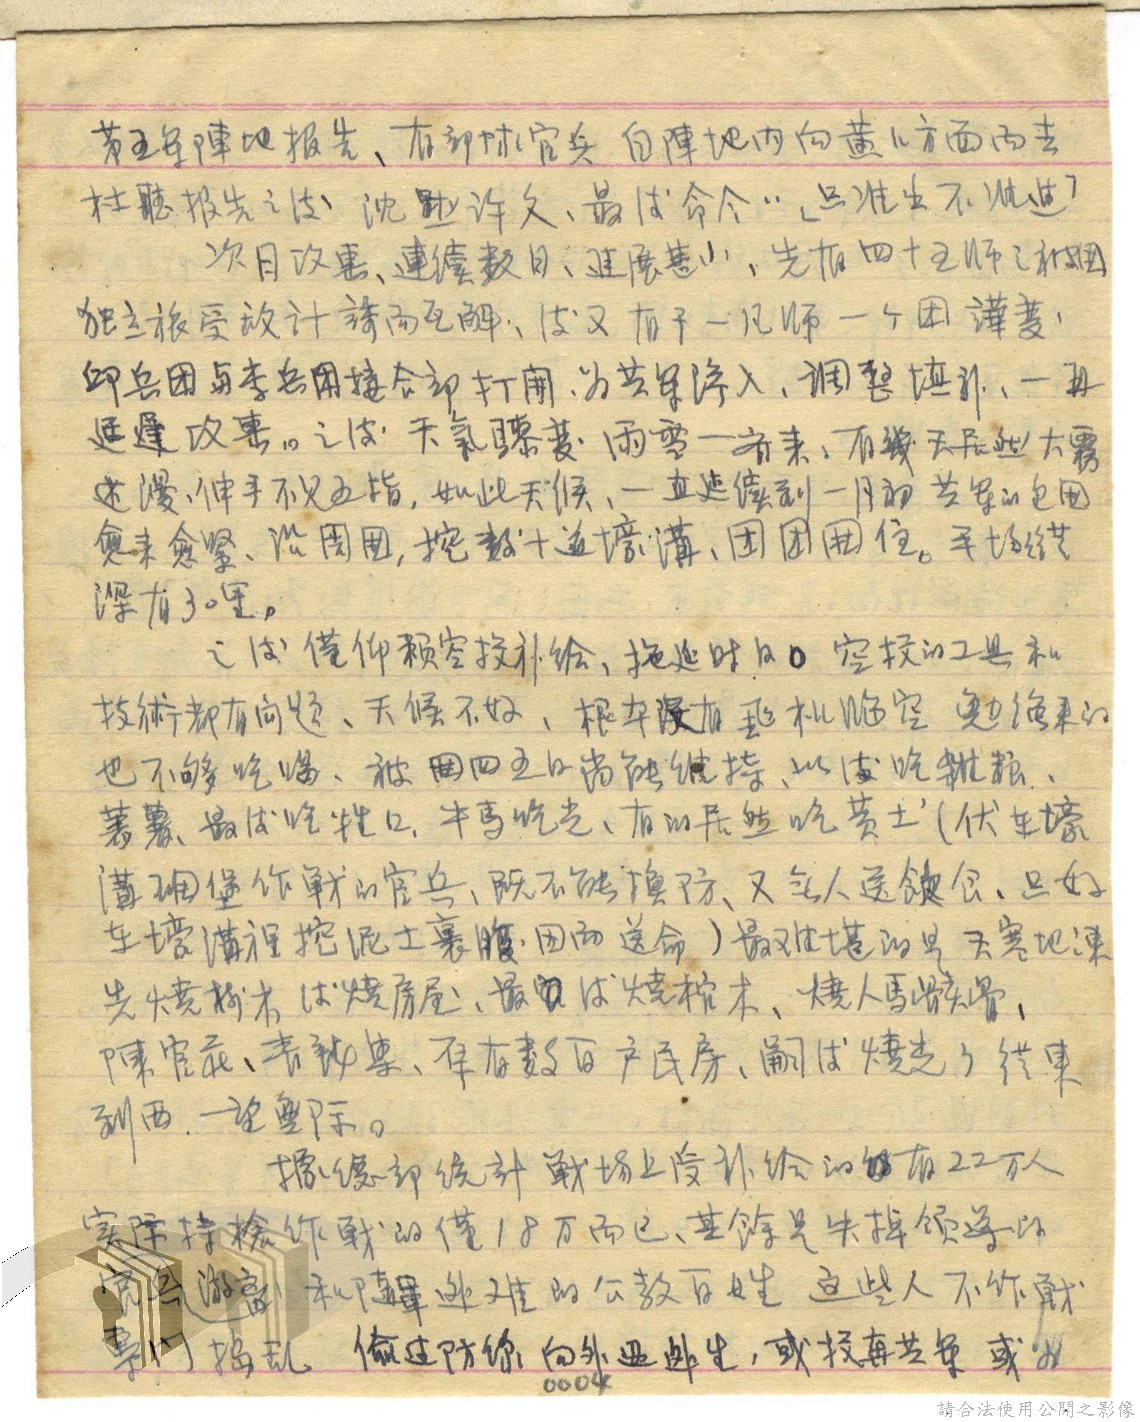 第五军陣地报告、有部忰官兵自陣地内向黃口方面而去
杜聽报告之後沈默许久、最後命令："只准出不准进"
次日攻击、連續数日、进展甚小、先有四十五师之
独立旅受敌计誘而瓦解、後又有于一凡师一个团譁变、
邱兵团与李兵团接合部打開、为共军滲入、调整填补、一再
延遲攻击。之後天氣驟变雨雪一齐来、有幾天居然大霧
迷漫、伸手不见五指，如此天候、一直延續到一月初共军的包围
愈来愈緊、沿周围，挖数十道壕溝、团团围住。平场縱
深有30里。
之後僅仰賴空投补给、拖延时日。空投的工具和
技術都有问题、天候不好、根本沒有飞机临空勉強来的
也不够吃喝、被围四五日尚能维持、以後吃雜粮、
薯、最後吃牲口，牛馬吃光、有的居然吃黄土（伏在壕
溝碉堡作戰的官兵、既不能换防、又無人送飲食、只好
在壕溝裡挖泥土裹腹因而送命）最难堪的是天寒地凍
先燒树木後燒房屋、最後燒棺木、燒人馬骸骨、
陳官莊、青龍集、原有数百户民房、嗣後燒光了從東
到西，一望無际。
據總部统计戰场上受补给的有22万人
実际持槍作戰的僅18万而已、其餘是失掉领导的
官兵游离和隨軍逃难的公教百姓这些人不作戰
专门搗乱 偷过防線向外逃生，或投奔共军或
0004
請合法使用公開之影像